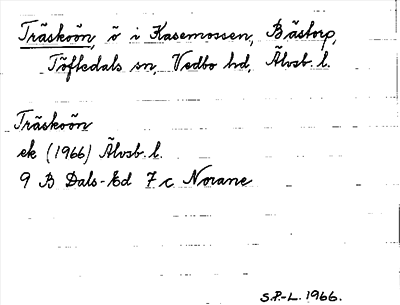 Träskoön, ö i Kasemossen, Bästorp,
Töftedals sn, Vedbo hd, Älvsb. l.
Träskoön
ek (1966) Älvsb. l.
9 B Dals-Ed 7 c Norane
S.P.-L. 1966.